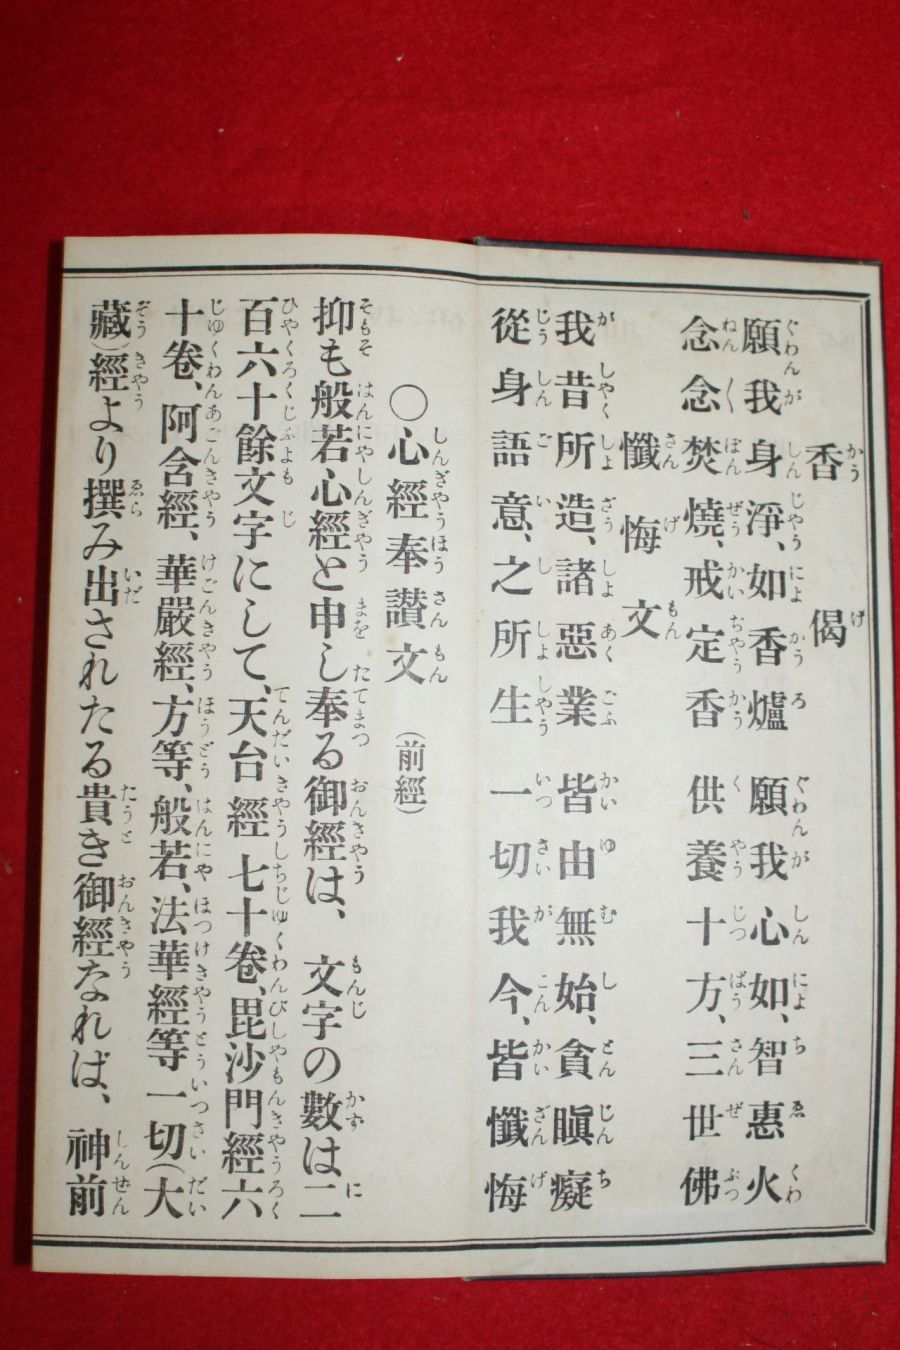 香偈
願我身淨、如香爐 願我心如、智惠火
念念焚燒、戒定香 供養十方、三世佛
懺悔文
我昔所造、諸惡業 皆由無始、貪瞋癡
從身語意、之所生 一切我今、皆懺悔
〇心經奉讃文 (前經)
抑も般若心經と申し奉る御經は、文字の數は二
百六十餘文字にして、天台經七十卷、毘沙門經六
十卷、阿含經、華嚴經、方等、般若、法華經等一切(大
藏)經より撰み出されたる貴き御經なれば、神前